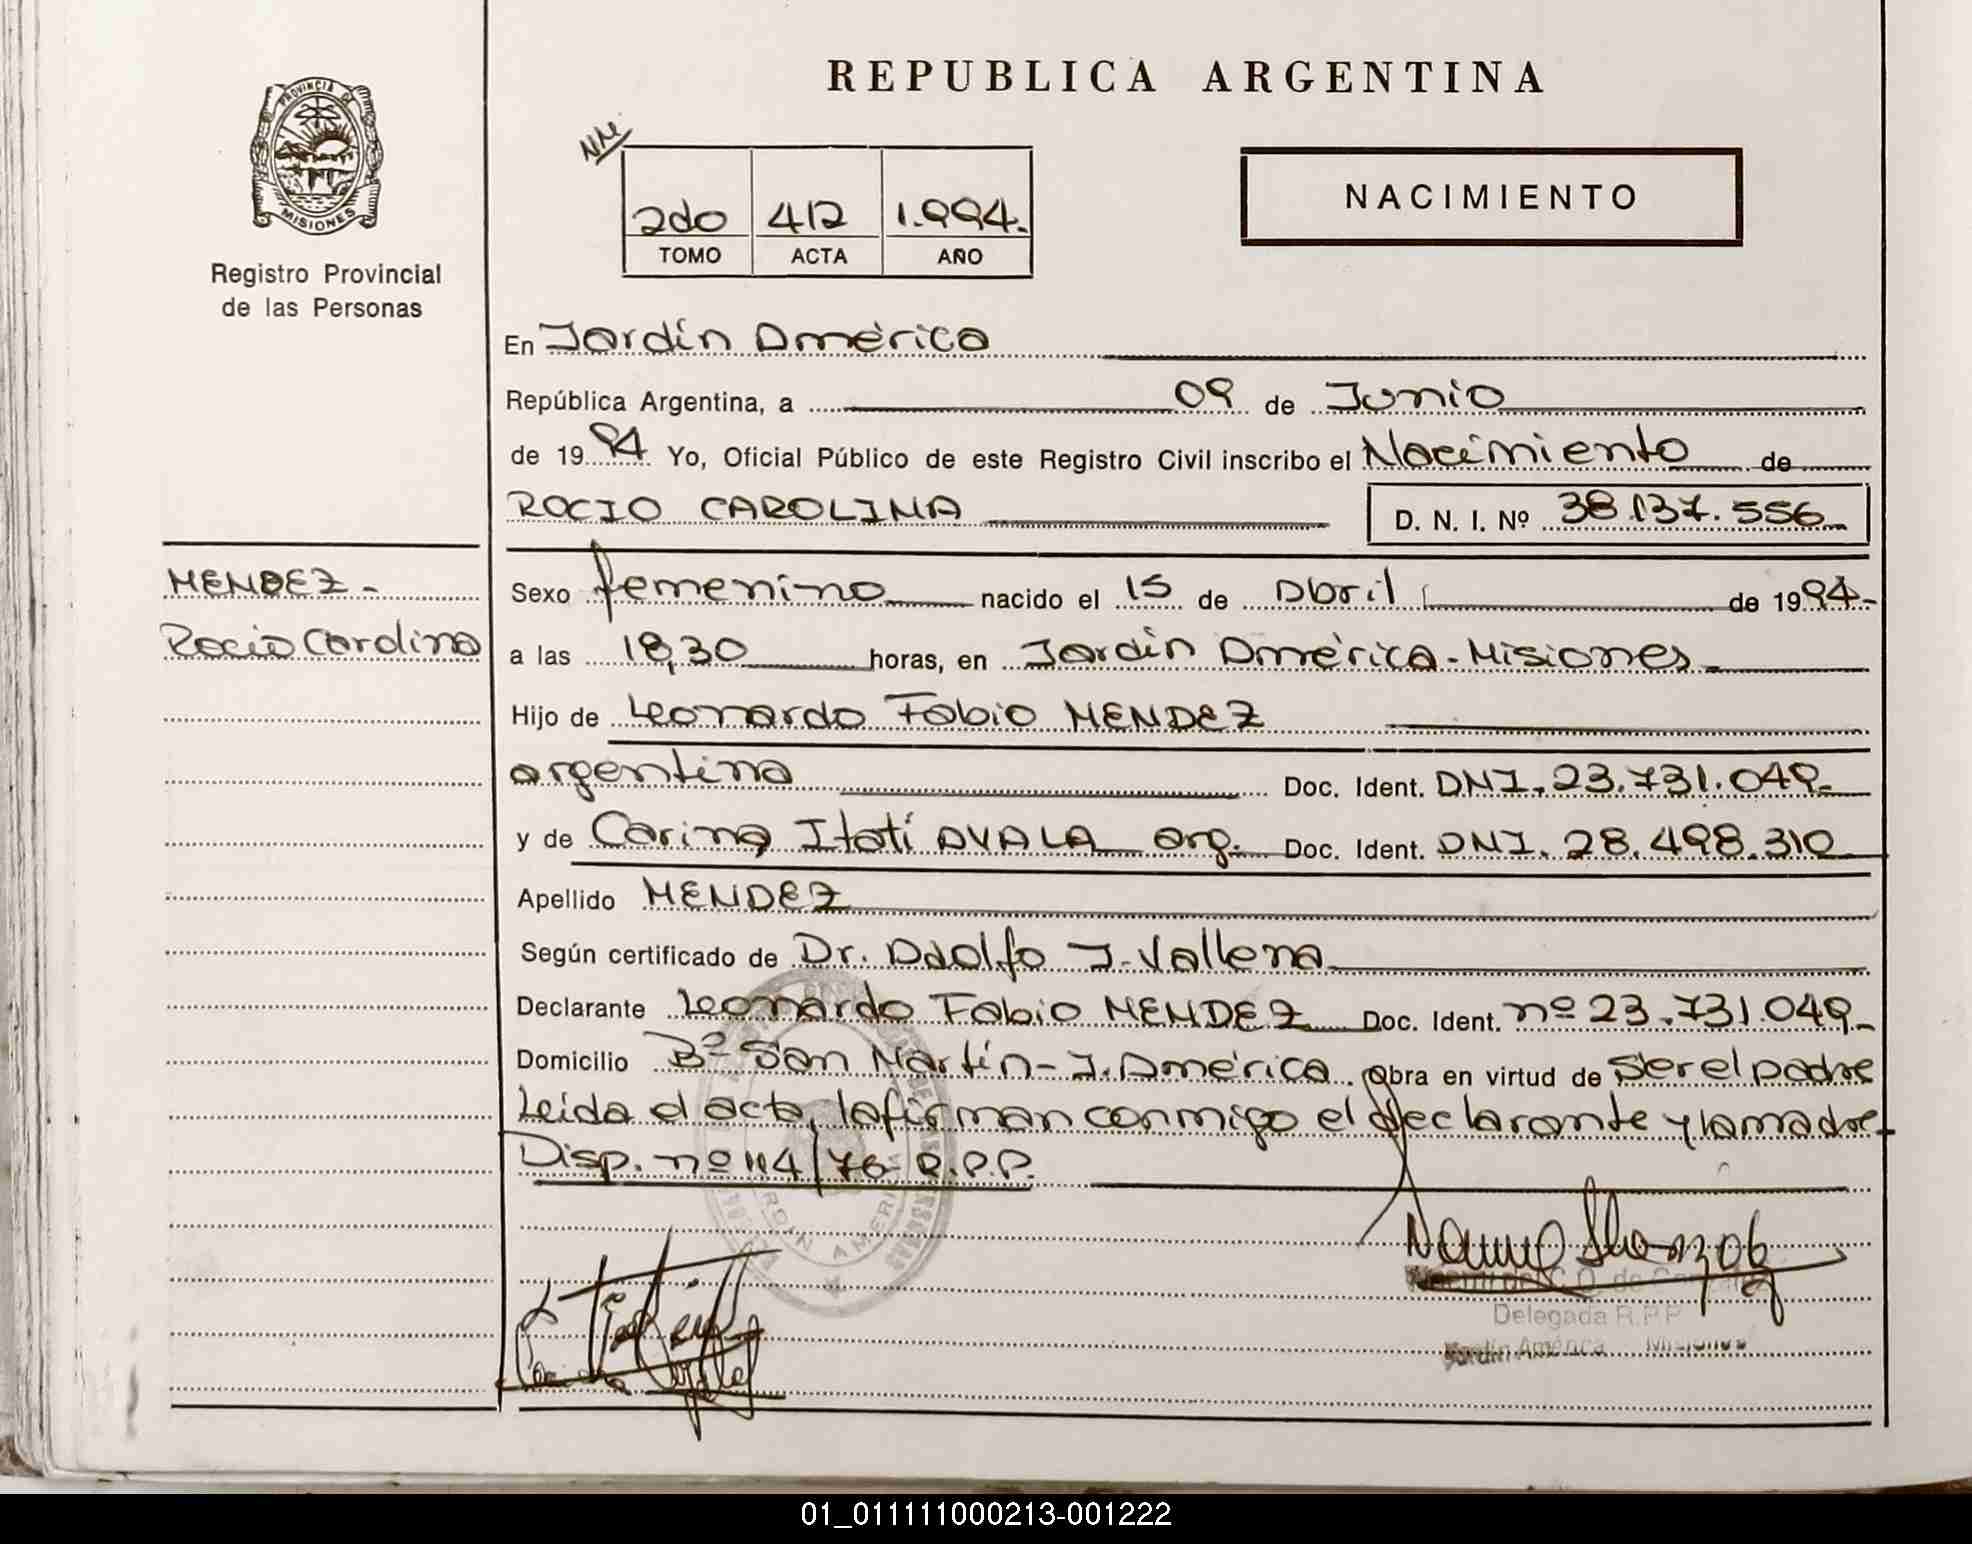 REPUBLICA ARGENTINA
PROVINCIA DE
MISIONES
Registro Provincial
de las Personas
NM
2do 412 1.994.
TOMO ACTA AÑO
NACIMIENTO
En Jardín América
República Argentina, a 09 de Junio
de 1994 Yo, Oficial Público de este Registro Civil inscribo el Nacimiento de
ROCIO CAROLINA D. N. I. Nº 38.137.556
MENDEZ -
Rocio Carolina
Sexo femenino nacido el 15 de Abril de 1994.
a las 18,30 horas, en Jardín América - Misiones
Hijo de Leonardo Fabio MENDEZ
argentina Doc. Ident. DNI. 23.731.049.
y de Carina Itatí AYALA arg. Doc. Ident. DNI. 28.498.310
Apellido MENDEZ
Según certificado de Dr. Adolfo J. Vallena
Declarante Leonardo Fabio MENDEZ Doc. Ident. nº 23.731.049.
Domicilio Bº San Martín - J. América. Obra en virtud de ser el padre
Leida el acta, la firman conmigo el declarante y la madre
Disp. nº 114/76 R.P.P.
Delegada R.P.P
Jardín América Misiones
01_011111000213-001222